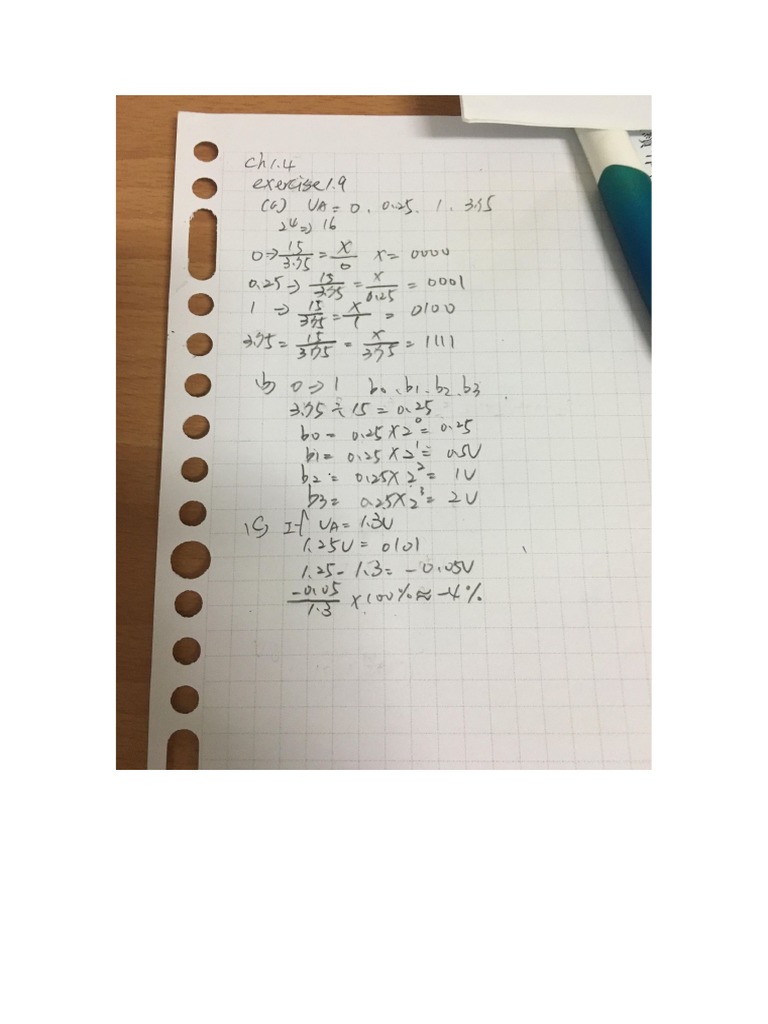 ch1.4
exercise1.9
(a) VA = 0 . 0.25 . 1 . 3.75
2^4 => 16
0 => 15/3.75 = X/0 X = 0000
0.25 => 15/3.75 = X/0.25 = 0001
1 => 15/3.75 = X/1 = 0100
3.75 = 15/3.75 = X/3.75 = 1111
b) 0 => 1 b0 . b1 . b2 . b3
3.75 ÷ 15 = 0.25
b0 = 0.25 × 2^0 = 0.25
b1 = 0.25 × 2^1 = 0.5V
b2 = 0.25 × 2^2 = 1V
b3 = 0.25 × 2^3 = 2V
(C) If VA = 1.3V
1.25V = 0101
1.25 - 1.3 = -0.05V
-0.05/1.3 × 100% ≈ -4%